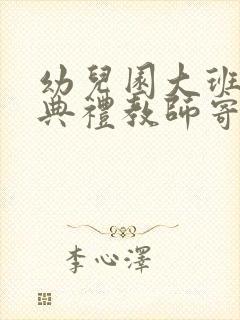 幼兒園大班
典禮教師寄
李心澤